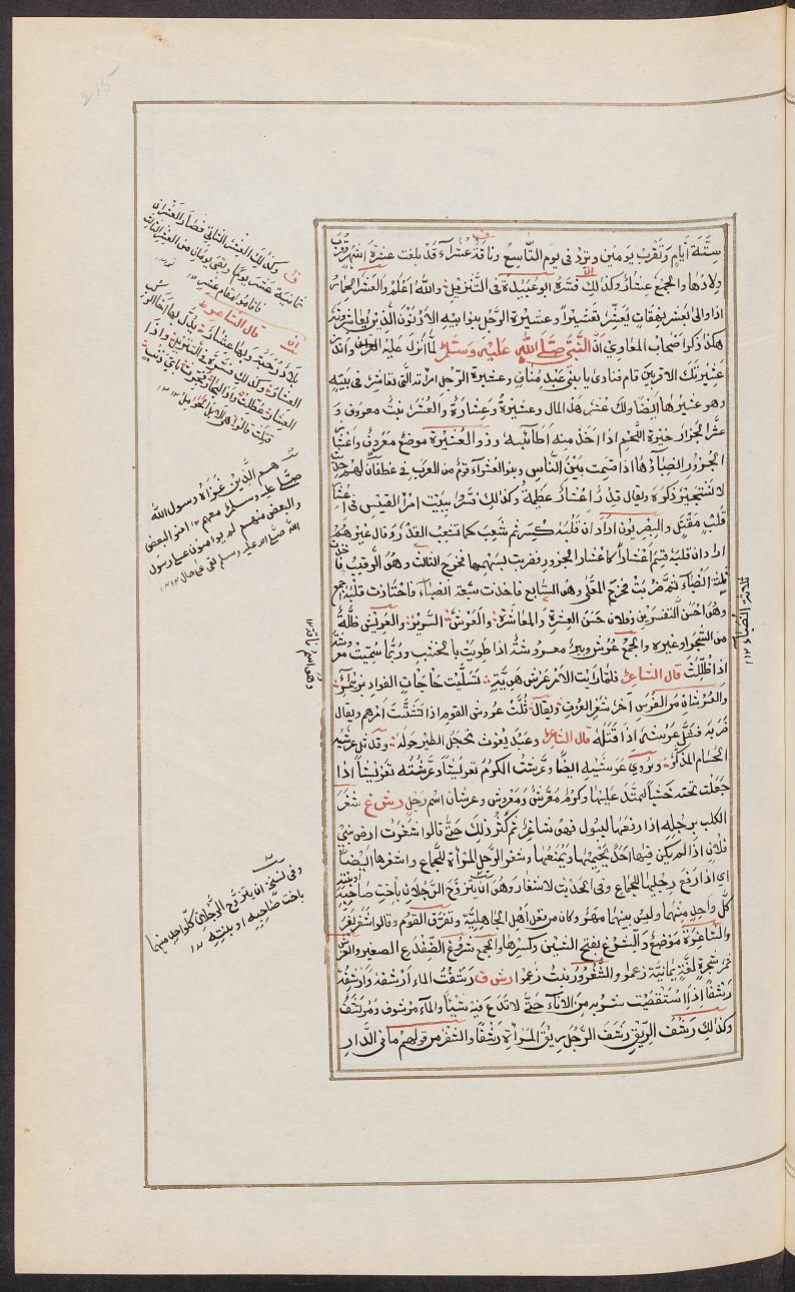 215
ستة أيام وتقرب يومين وترد في يوم التاسع وناقة عشراء قد بلغت عشرة اشهر وقرب
ولادها والجمع عشار وكذلك فسره ابو عبيدة في التنزيل والله اعلم والعشر الحمار
اذا والى بعشر نهقات يعشر تعشيرا وعشيرة الرجل بنوا ابيه الادنون الذين يعاشرونه
هكذا ذكر اصحاب المغازي ان النبي صلى الله عليه وسلم لما انزل عليه وانذر
عشيرتك الاقربين قام فنادى يا بني عبد مناف وعشيرة الرجل امراته التي تعاشره في بيته
وهو عشيرها ايضا ولك عشر هذا المال وعشيره وعشاره والعشر نبت معروف و
عشر الجزار خيرة اللحم اذا اخذ منه اطائبه وذو العشيرة موضع معروف واعشار
الجزور انصباؤها اذا قسمت بين الناس وبنو العشراء قوم من العرب في غطفان لهم حديث
لا نستجيز ذكره ويقال قدر اعشار عظيمة وكذلك فسروا بيت امرؤ القيس في اعشار
قلب مقتل والبصريون اراد ان قلبه كسر ثم شعب كما تشعب القدر وقال غيرهم
اراد ان قلبه قسم اعشارا كاعشار الجزور فضربت بسهمها فخرج الثالث وهو الرقيب فا
ثلثة انصباء ثم ضربت فخرج المعلى وهو السابع فاخذت سبعة انصباء فاحتازت قلبه اجمع
وهو احسن التفسيرين وفلان حسن العشرة والمعاشرة والعرش السرير والعريش ظلة
من الشجر او غيره والجمع عروش وبير معروشة اذا طويت بالخشب وربما سميت
اذا ظللت قال الشاعر فلما رايت الامر عرش هوية تسليت حاجات الفواد بزيمرا
والعرشان من الفرس آخر شعر العرف ويقال ثلت عروش القوم اذا تشتت امرهم ويقال
ضربه فثل عرشه اذا قتله قال الشاعر وعبد يغوث تحجل الطير حوله وقد ثل عرشيه
الحسام المذكر ويروى عرشيه ايضا وعرشت الكروم تعريشا وعرشته تعريشا اذا
جعلت تحته خشبا ليمتد عليها وكروم معرش ومعروش وعرشان اسم رجل رش غ شغر
الكلب برجله اذا رفعها ليبول فهو شاغر ثم كثر ذلك حتى قالوا شغرت ارض بني
فلان اذا لم يكن فيها احد يحميها ويمنعها وشغر الرجل المرأة للجماع واشغرها ايضا
اي اذا رفع رجليها للجماع وفي الحديث لا شغار وهو ان يتزوج الرجلان باخت صاحبه
كل واحد منهما وليس بينهما مهر وكان من فعل اهل الجاهلية وتفرق القوم وقالوا شغر بغر
والشاغرة موضع والشرغ بفتح الشين وكسرها والجمع شروغ الضفدع الصغير
ثمر شجرة لغة يمانية زعموا والشغرور نبت زعموا رش ف رشفت الماء ارشفه وارشفه
رشفا اذا استقصيت شربه من الاناء حتى لا تدع فيه شيئا والماء مرشوف ومرتشف
وكذلك رشف الريق رشف الرجل ريق المرأة رشفا والشفر من قولهم ما في الدار
ف وكذلك العشر الثاني فصار العشران
ثمانية عشر يوما وبقي يومان من العشر الثالث
فاقاموه مقام عشر ١٢
قال الشاعر
العشار وكذلك فسروه في التنزيل واذا
العشار عطلت
هم الذين غزاة رسول الله
صلى عليه وسلم معهم ١٢
الله صلى الله عليه وسلم
ثلاثة انصباء ١٢
وهو اسم ناقة ١٢
وفي نسخ ان يتزوج الرجلان كل واحد منهما
باخت صاحبه او بنته ١٢